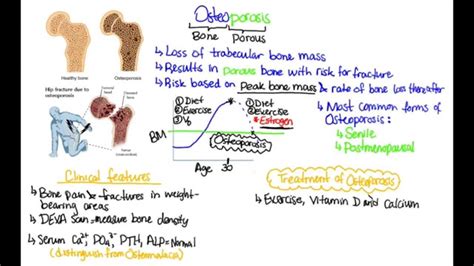 Osteoporosis
Bone Porous
↳ Loss of trabecular bone mass
↳ Results in porous bone with risk for fracture
↳ Risk based on Peak bone mass & rate of bone loss thereafter
Healthy bone
Osteoporosis
Hip fracture due to
osteoporosis
① Diet
② Exercise
③ VD
① Diet
② Exercise
* Estrogen
BM
Osteoporosis
Age 30
↳ Most Common forms of
Osteoporosis:
↳ Senile
↳ Postmenopausal
Clinical features
↳ Bone pain & fractures in weight-
bearing areas
↳ DEXA Scan = measure bone density
↳ Serum Ca²⁺, PO₄³⁻, PTH, ALP = Normal
(distinguish from Osteomalacia)
Treatment of Osteoporosis
↳ Exercise, Vitamin D and Calcium